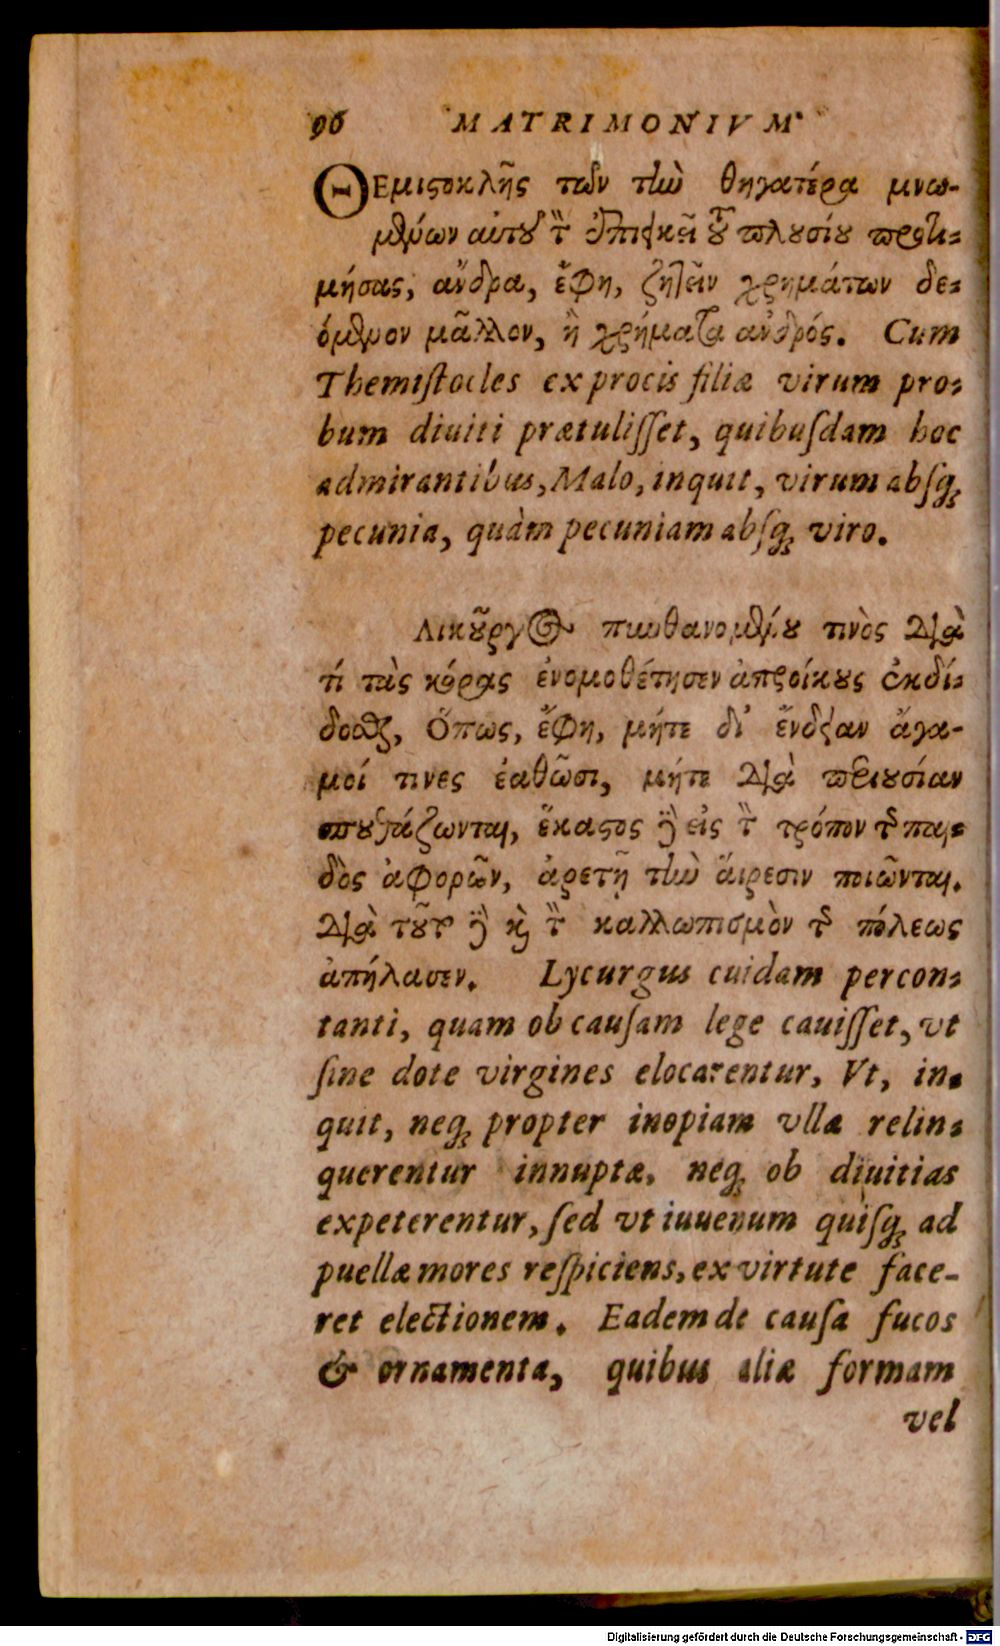 96 MATRIMONIVM
ΘΕμιϛοκλῆς τῶν τὴν θηγατέρα μνω-
μένων αὐτοῦ τὸν ἐπιεικῆ τοῦ πλουσίου προτι-
μήσας, ἄνδρα, ἔφη, ζητεῖν χρημάτων δε-
όμενον μᾶλλον, ἢ χρήματα ἀνδρός. Cum
Themiſtocles ex procis filiæ virum pro-
bum diuiti prætuliſſet, quibuſdam hoc
admirantibus, Malo, inquit, virum abſq;
pecunia, quàm pecuniam abſq; viro.
Λικοῦργος πυνθανομένου τινὸς διὰ
τί τὰς κόρας ἐνομοθέτησεν ἀπροίκους ἐκδί-
δοσθαι, Ὅπως, ἔφη, μήτε δι' ἔνδειαν ἄγα-
μοί τινες ἐαθῶσι, μήτε διὰ περιουσίαν
σπουδάζωνται, ἕκαϛος δὲ εἰς τὸν τρόπον τῆς παι-
δὸς ἀφορῶν, ἀρετῇ τὴν αἵρεσιν ποιῶνται.
Διὰ τοῦτο δὲ καὶ τὸν καλλωπισμὸν τῆς πόλεως
ἀπήλασεν. Lycurgus cuidam percon-
tanti, quam ob cauſam lege cauiſſet, vt
ſine dote virgines elocarentur, Vt, in-
quit, neq; propter inopiam vllæ relin-
querentur innuptæ, neq; ob diuitias
expeterentur, ſed vt iuuenum quiſq; ad
puellæ mores reſpiciens, ex virtute face-
ret electionem. Eadem de cauſa fucos
& ornamenta, quibus aliæ formam
vel
Digitalisierung gefördert durch die Deutsche Forschungsgemeinschaft - DFG